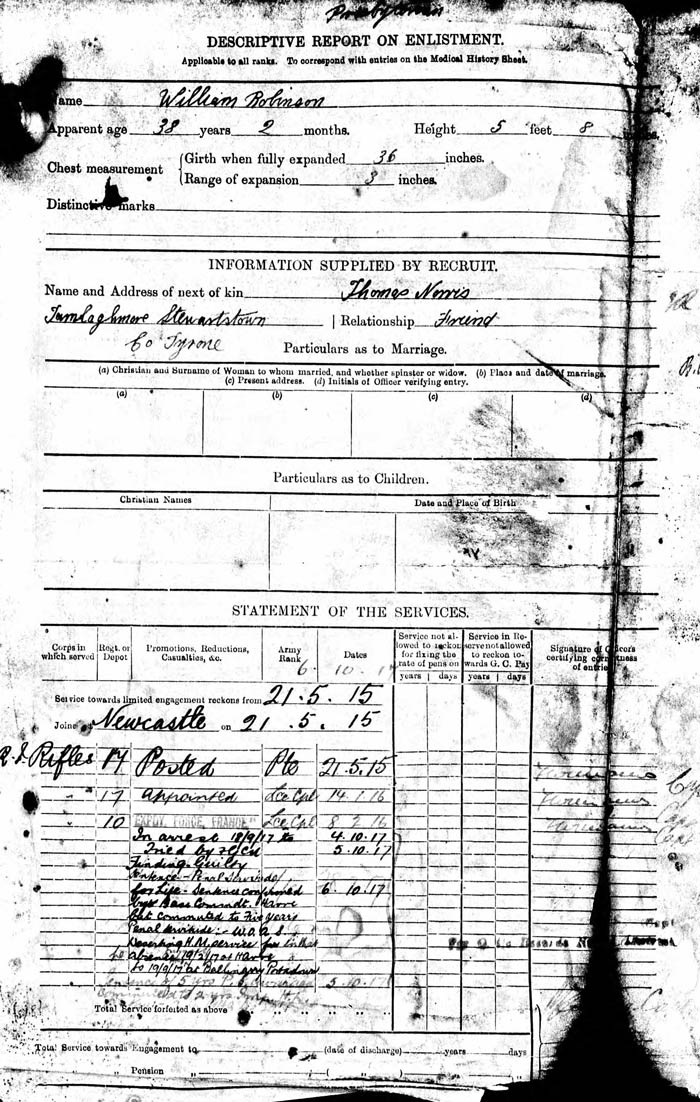 Presbyterian
DESCRIPTIVE REPORT ON ENLISTMENT.
Applicable to all ranks. To correspond with entries on the Medical History Sheet.
Name William Robinson
Apparent age 38 years 2 months. Height 5 feet 8
Chest measurement
Girth when fully expanded 36 inches.
Range of expansion 3 inches.
Distinctive marks
INFORMATION SUPPLIED BY RECRUIT.
Name and Address of next of kin Thomas Norris
Tamlaghmore Stewartstown | Relationship Friend
Co Tyrone
Particulars as to Marriage.
(a) Christian and Surname of Woman to whom married, and whether spinster or widow. (b) Place and date of marriage.
(c) Present address. (d) Initials of Officer verifying entry.
(a) (b) (c) (d)
Particulars as to Children.
Christian Names Date and Place of Birth
STATEMENT OF THE SERVICES.
Corps in which served Regt. or Depot Promotions, Reductions, Casualties, &c. Army Rank Dates Service not allowed to reckon for fixing the rate of pension Service in Reserve not allowed to reckon towards G. C. Pay Signature of Officers certifying correctness of entries
years days years days
6 10 17
Service towards limited engagement reckons from 21.5.15
Joined at Newcastle on 21.5.15
R.I. Rifles 17 Posted Pte 21.5.15
" 17 Appointed Lce Cpl 14.1.16
" 10 EXPDY. FORCE, FRANCE Lce Cpl 8.2.16
In arrest 18/9/17 to 4.10.17
Tried by FGCM 5.10.17
Finding Guilty
Sentence - Penal Servitude
for Life - Sentence confirmed 6.10.17
by Base Commdt. Havre
but commuted to Five years
Penal servitude :-
Deserting H.M. service
absence 19/2/17 at Havre
to 10/9/17 at
sentence of 5 yrs P.S. 5.10.17
commuted to 2 yrs
Total Service forfeited as above
Total Service towards Engagement to (date of discharge) years days
" Pension " ( " ) " "